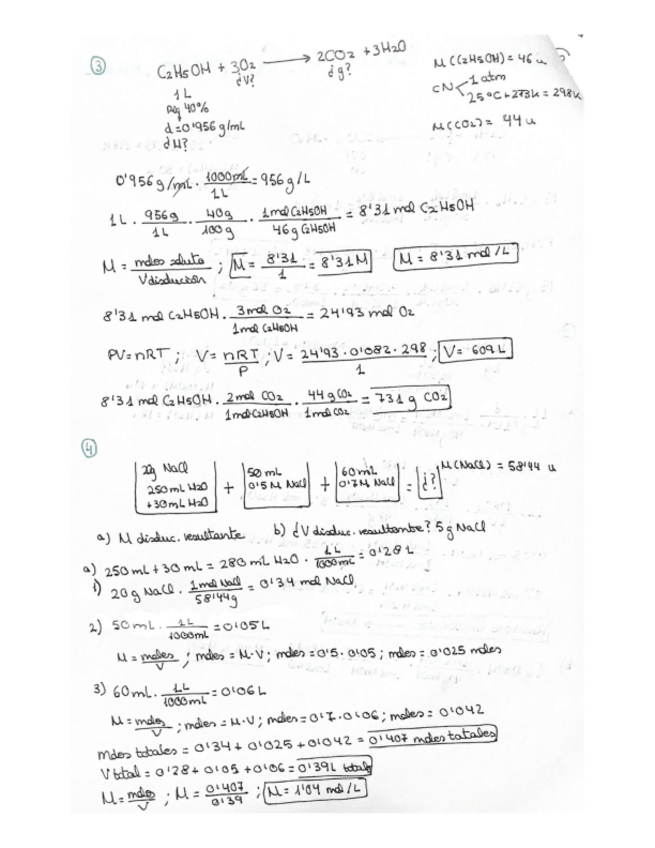 ③ C2H5OH + 3O2 → 2CO2 + 3H2O
¿V? ¿g?
1L
40%
d = 0'956 g/mL
¿M?
M(C2H5OH) = 46 u
CN 1 atm
25ºC + 273K = 298K
M(CO2) = 44 u
0'956 g/mL · 1000mL/1L = 956 g/L
1L · 956g/1L · 40g/100g · 1mol C2H5OH/46g C2H5OH = 8'31 mol C2H5OH
M = moles soluto/V disolución ; M = 8'31/1 = 8'31M M = 8'31 mol/L
8'31 mol C2H5OH · 3mol O2/1mol C2H5OH = 24'93 mol O2
PV = nRT ; V = nRT/P ; V = 24'93 · 0'082 · 298/1 ; V = 609L
8'31 mol C2H5OH · 2mol CO2/1mol C2H5OH · 44g CO2/1mol CO2 = 731 g CO2
④
20g NaCl 250mL H2O +30mL H2O + 50mL 0'5M NaCl + 60mL 0'7M NaCl = ¿? M(NaCl) = 58'44 u
a) M disoluc. resultante b) ¿V disoluc. resultante? 5g NaCl
a) 250mL + 30mL = 280mL H2O · 1L/1000mL = 0'28L
1) 20g NaCl · 1mol NaCl/58'44g = 0'34 mol NaCl
2) 50mL · 1L/1000mL = 0'05L
M = moles/V ; moles = M·V ; moles = 0'5 · 0'05 ; moles = 0'025 moles
3) 60mL · 1L/1000mL = 0'06L
M = moles/V ; moles = M·V ; moles = 0'7 · 0'06 ; moles = 0'042
Moles totales = 0'34 + 0'025 + 0'042 = 0'407 moles totales
V total = 0'28 + 0'05 + 0'06 = 0'39L totals
M = moles/V ; M = 0'407/0'39 ; M = 1'04 mol/L